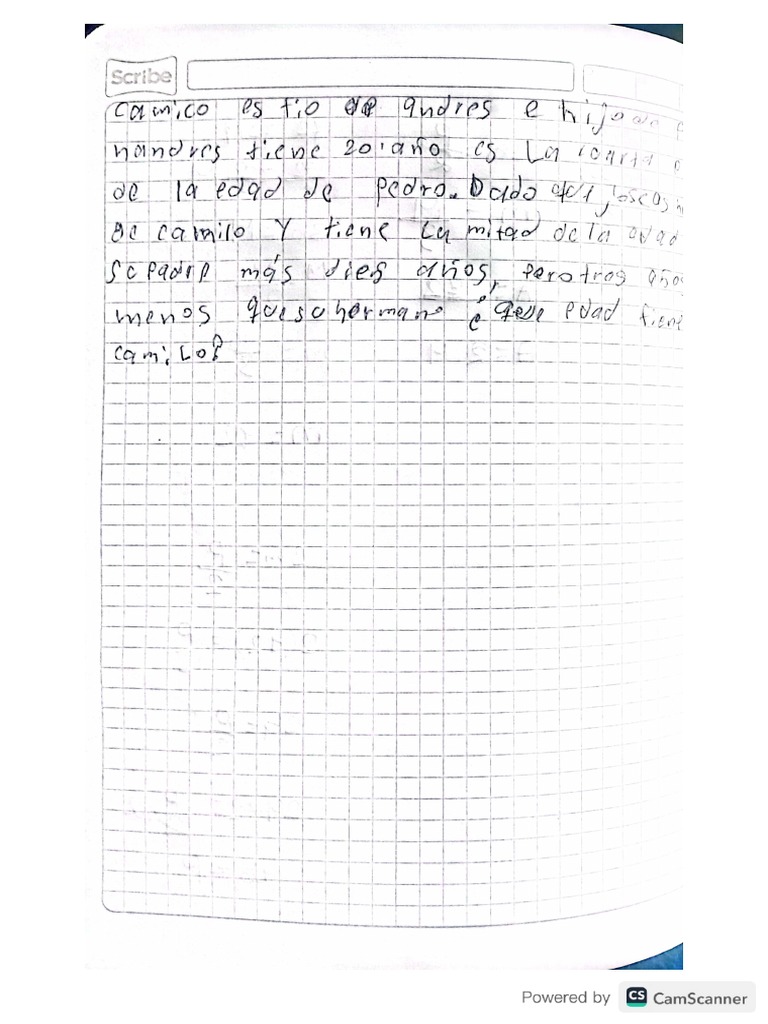 Scribe
camico es tio de andres e hijo de
nandres tiene 20 año es La cuarta
de la edad de pedro. Dado que jose es
de camilo y tiene La mitad de la edad
se padre más dies años, pero tros años
menos que su hermano ¿ que edad tiene
camilo?
Powered by CS CamScanner